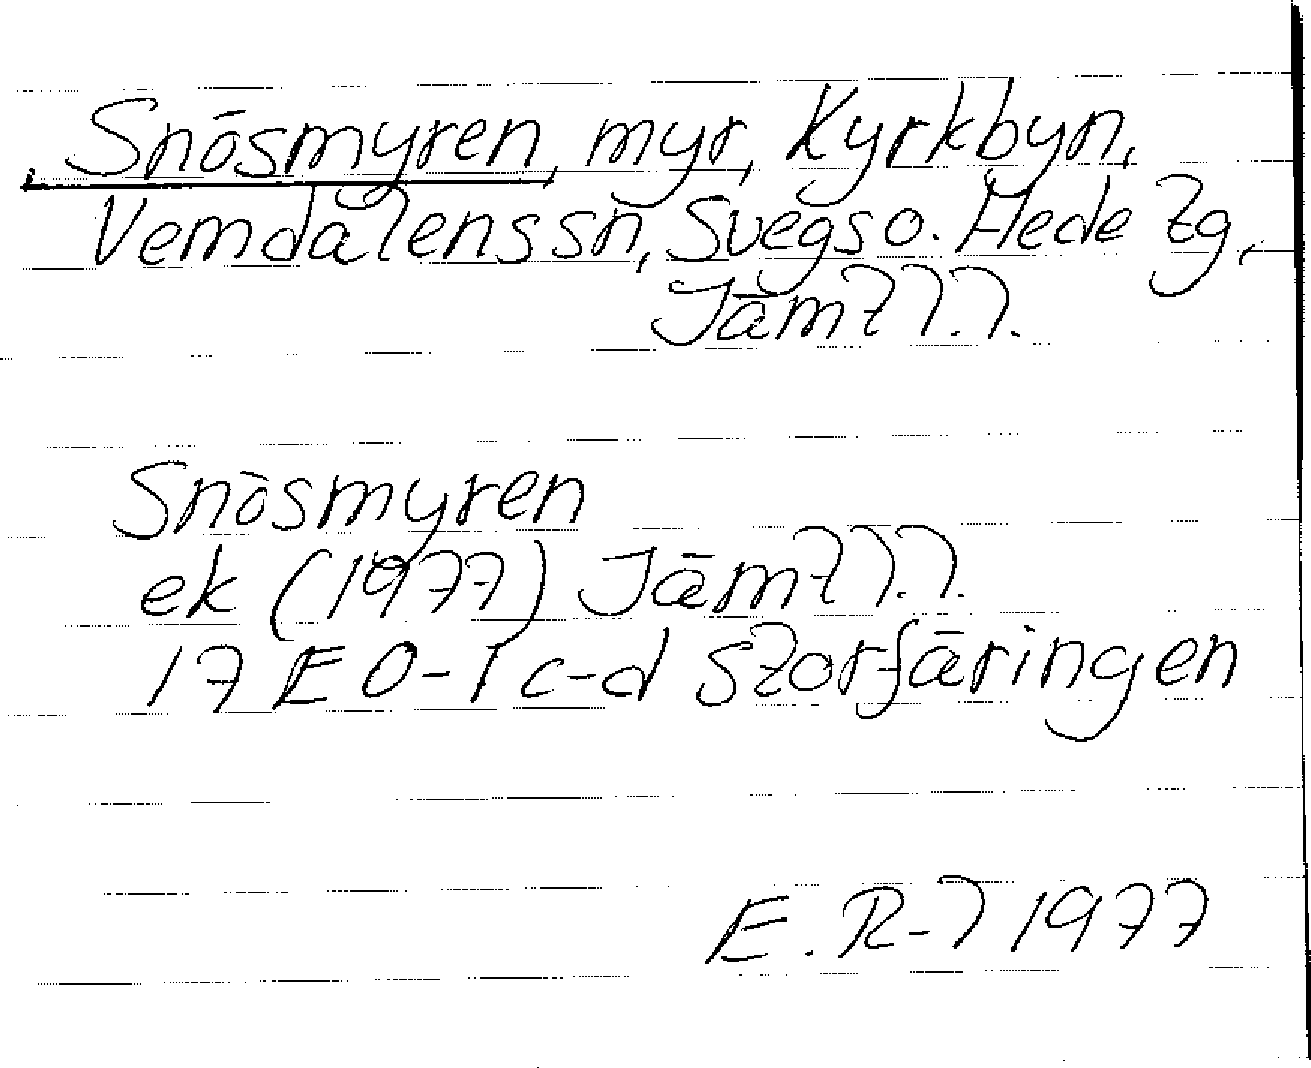 Snösmyren, myr, Kyrkbyn,
Vemdalens sn, Svegs o. Hede tg,
Jämtl.l.
Snösmyren
ek (1977) Jämtl.l.
17 E 0-1 c-d Storfäringen
E. R-l 1977